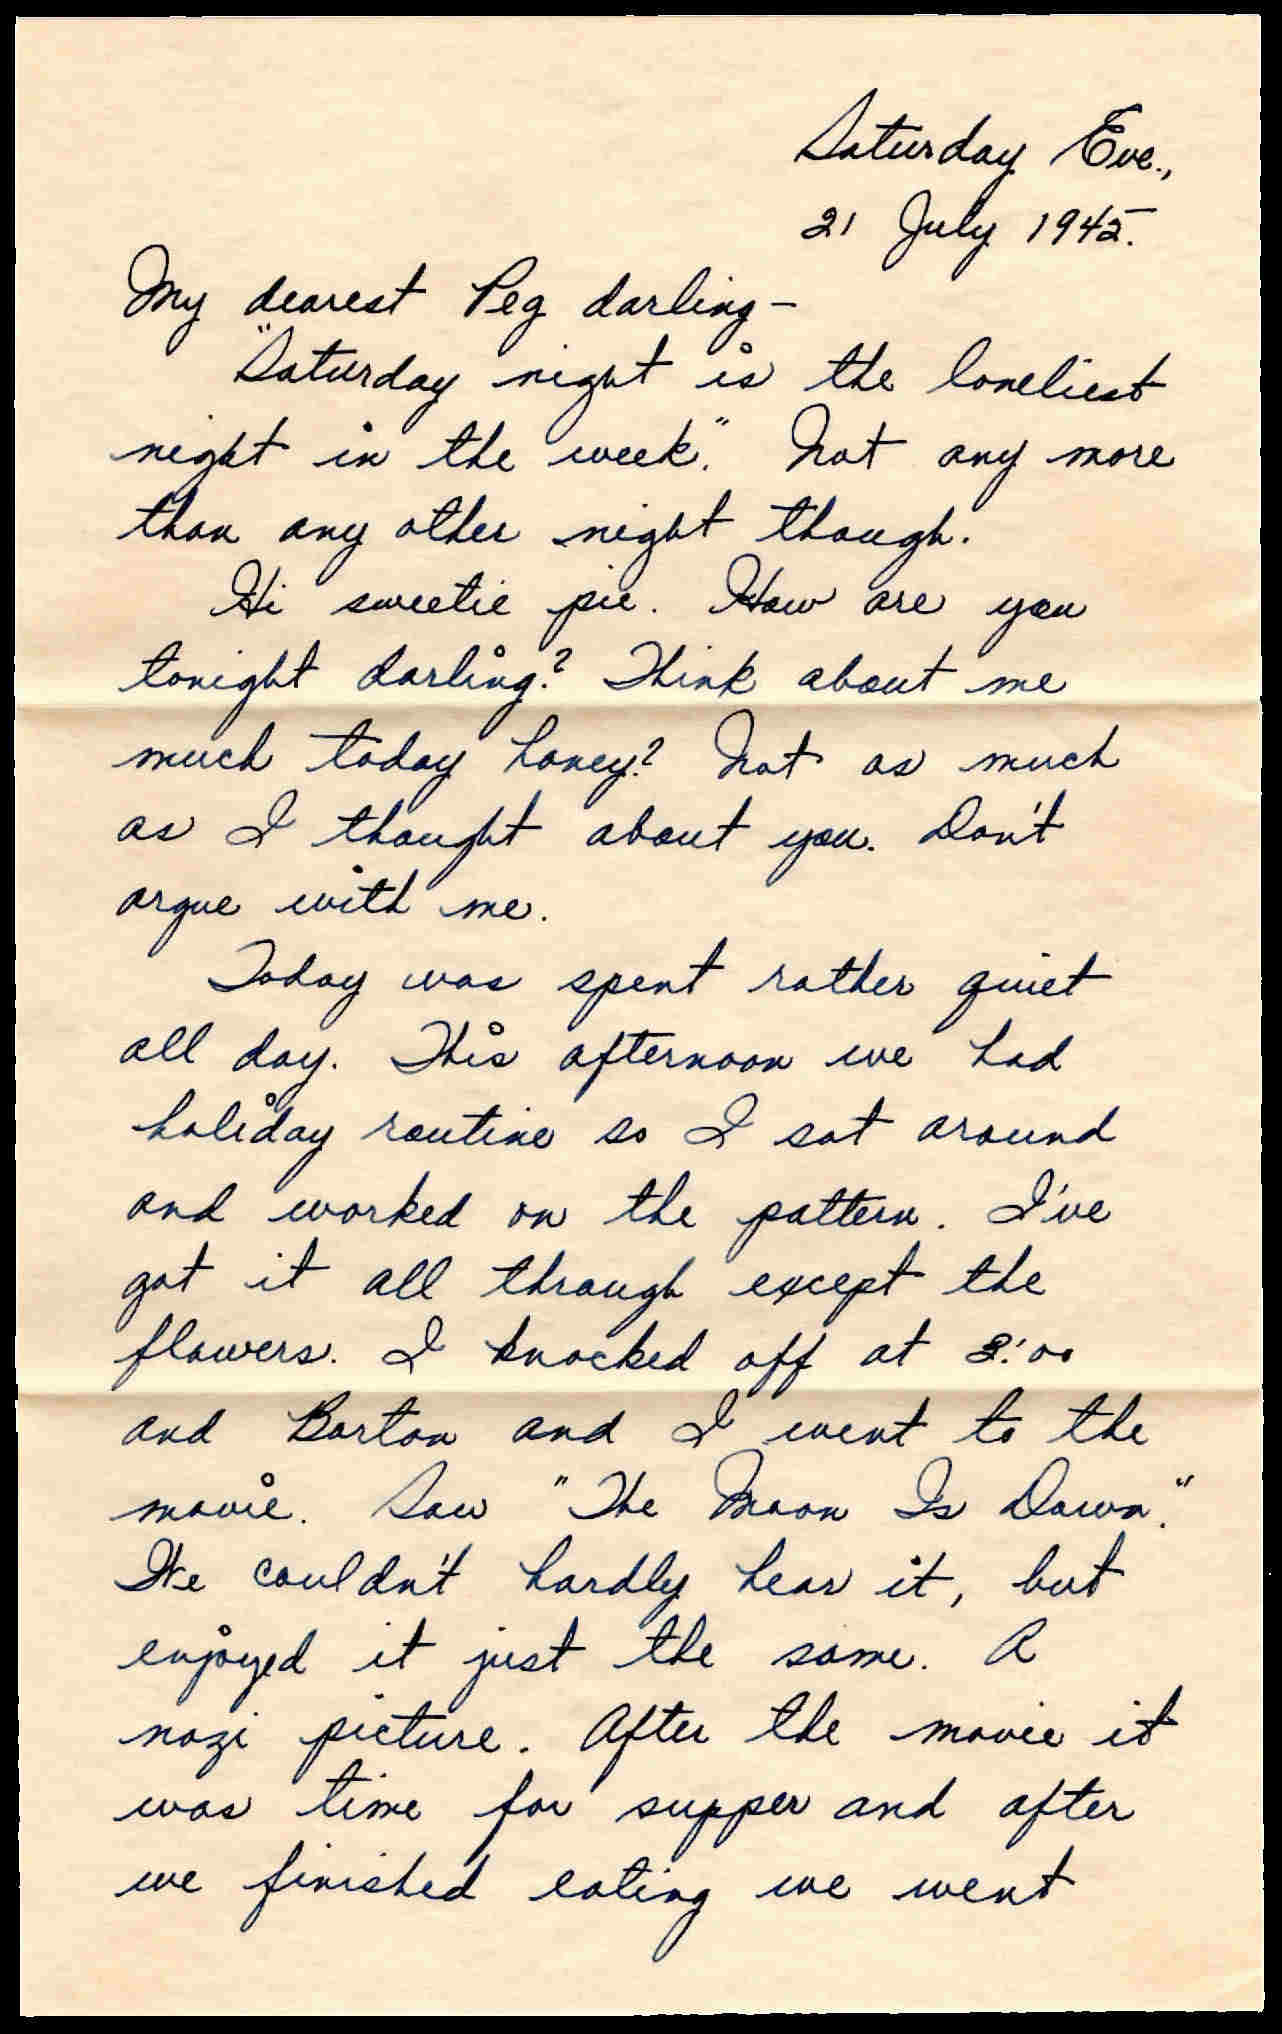 Saturday Eve.,
21 July 1945.
My dearest Peg darling -
"Saturday night is the loneliest
night in the week." Not any more
than any other night though.
Hi sweetie pie. How are you
tonight darling? Think about me
much today honey? Not as much
as I thought about you. Don't
argue with me.
Today was spent rather quiet
all day. This afternoon we had
holiday routine so I sat around
and worked on the pattern. I've
got it all through except the
flowers. I knocked off at 3:00
and Barton and I went to the
movie. Saw "The Moon Is Down."
We couldn't hardly hear it, but
enjoyed it just the same. A
nazi picture. After the movie it
was time for supper and after
we finished eating we went